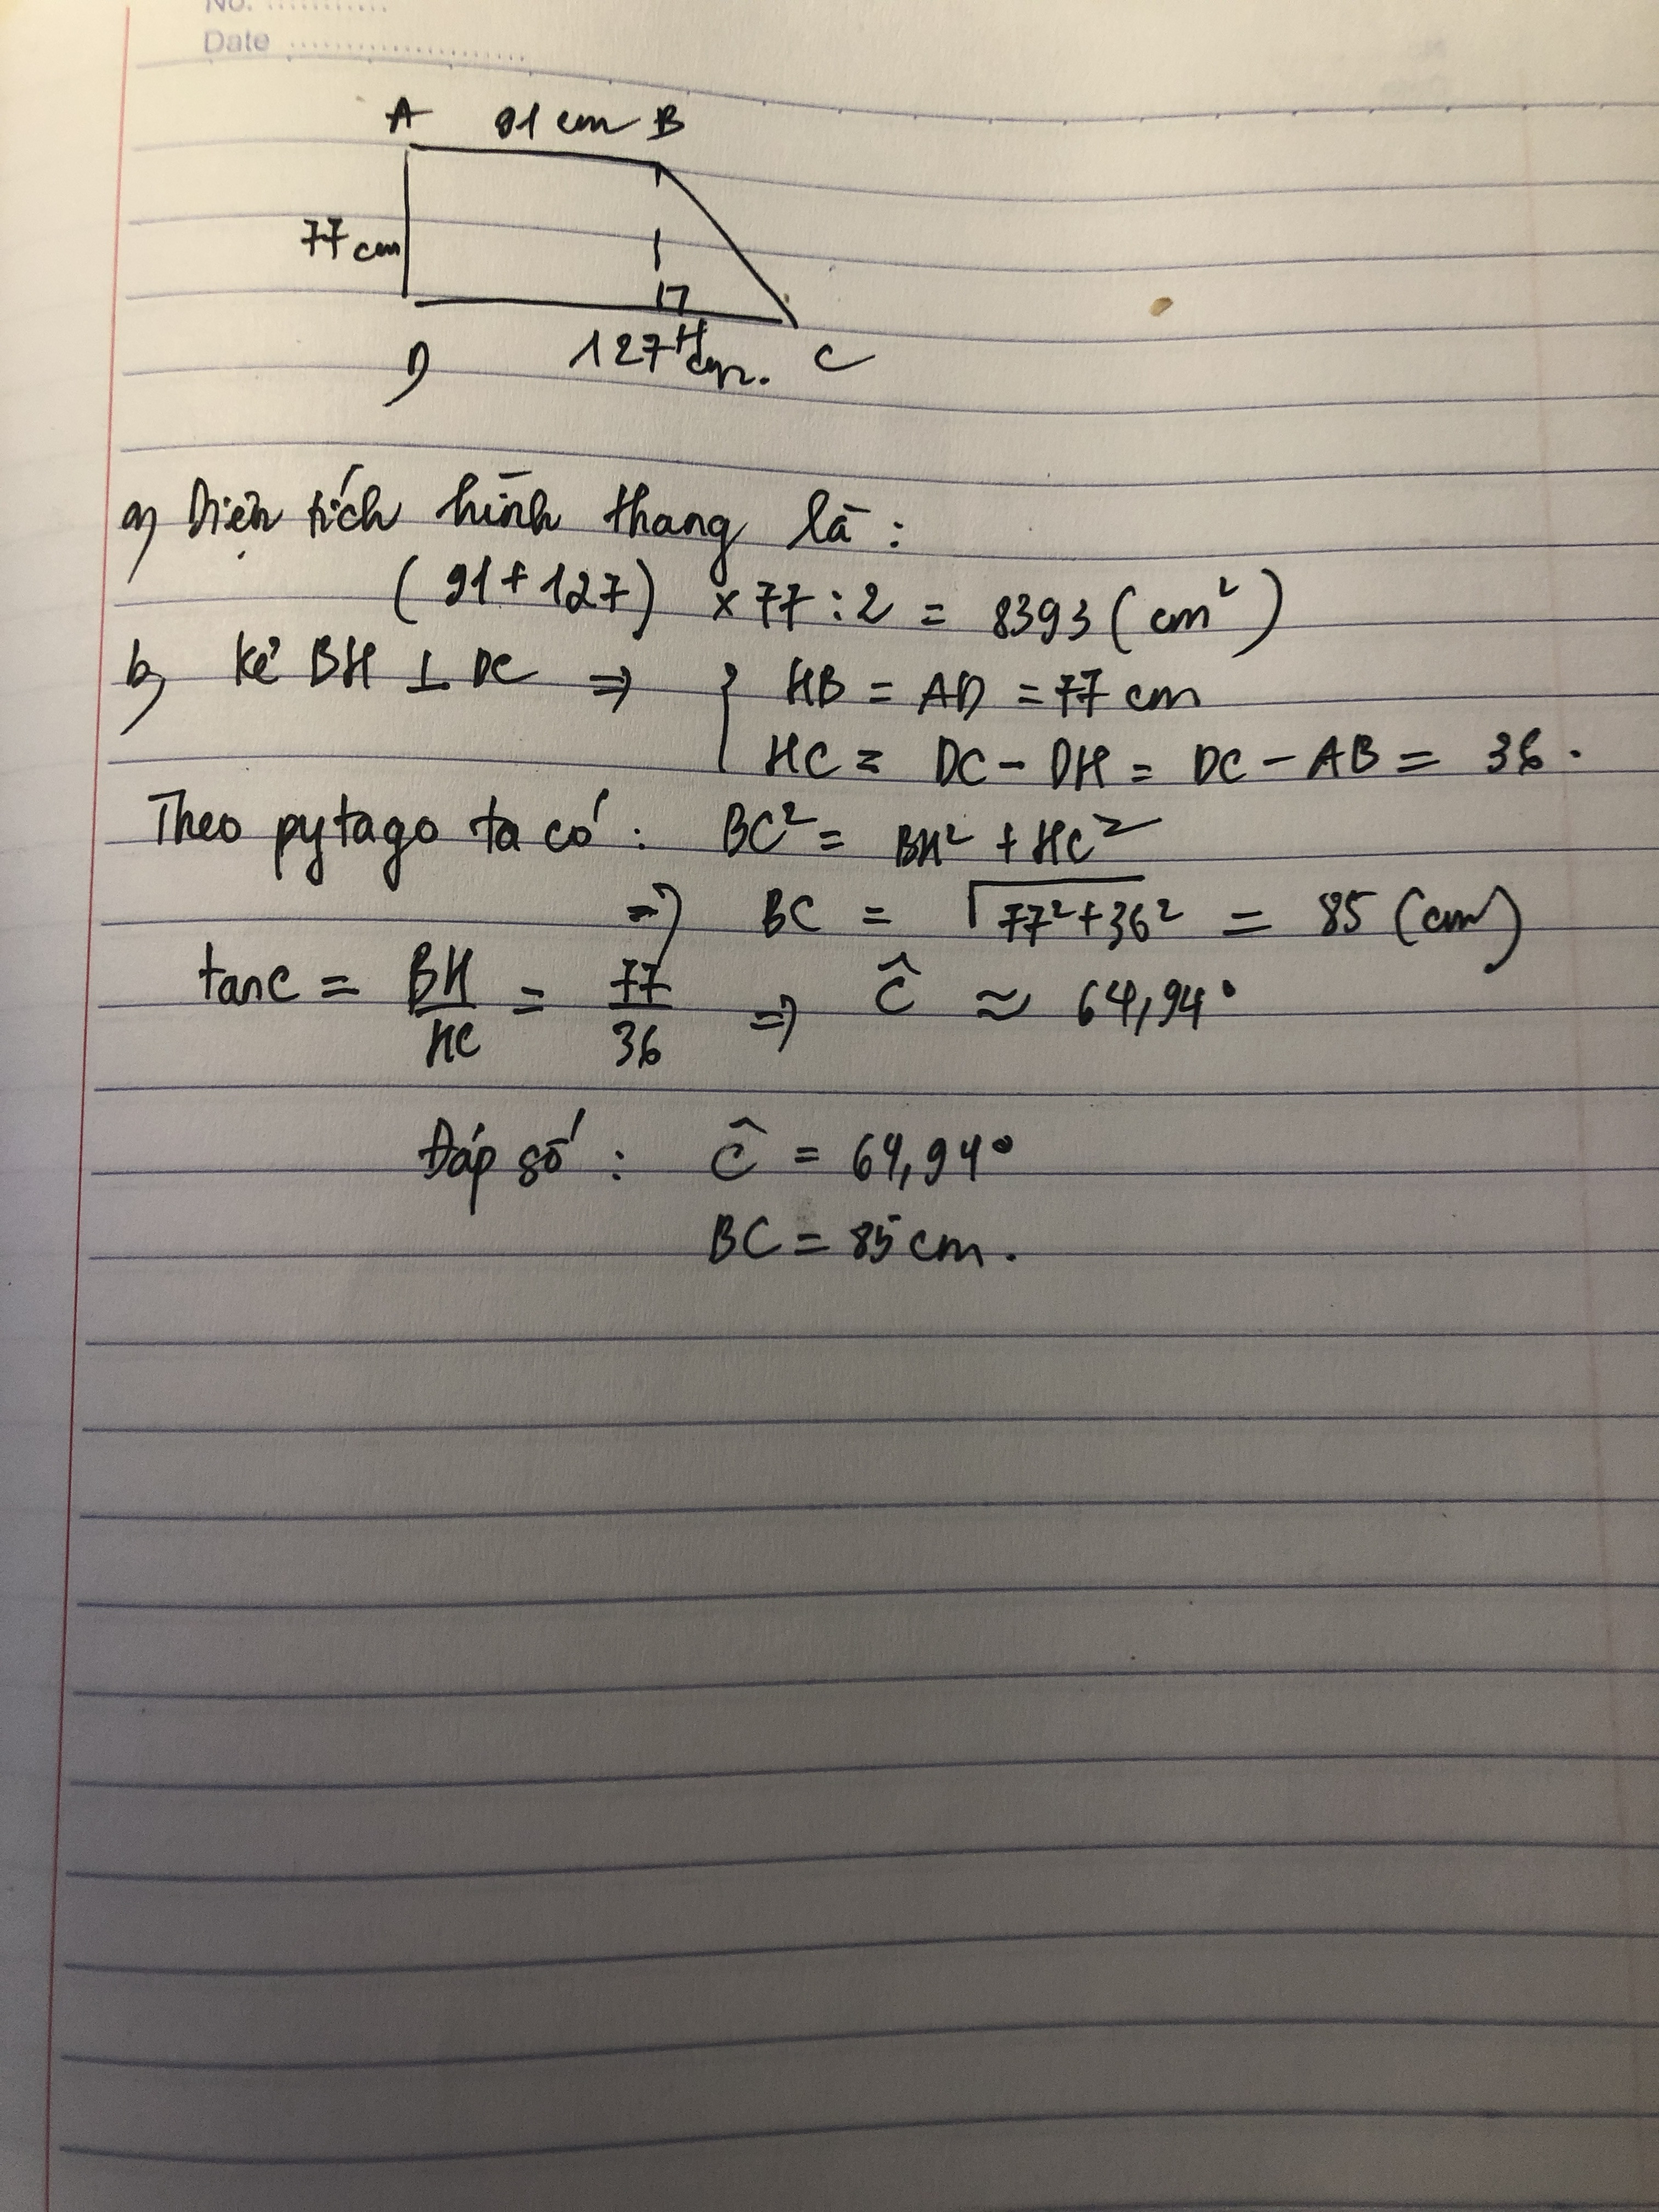 No. ............
Date ........................
A 91 cm B
77 cm
H
D 127 cm. C
a) Diện tích hình thang là :
(91 + 127) × 77 : 2 = 8393 (cm²)
b) Kẻ BH ⊥ DC ⇒ { HB = AD = 77 cm
HC = DC - DH = DC - AB = 36 .
Theo pytago ta có : BC² = BH² + HC²
⇒ BC = √77² + 36² = 85 (cm)
tanC = BH/HC = 77/36 ⇒ Ĉ ≈ 64,94°
Đáp số : Ĉ = 64,94°
BC = 85 cm .